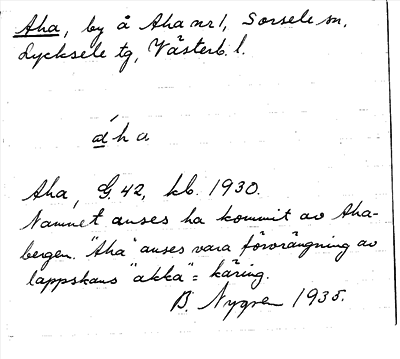 Aha, by å Aha nr 1, Sorsele sn,
Lycksele tg, Västerb. l.
áha
Aha, G. 42, kb. 1930.
Namnet anses ha kommit av Aha-
bergen. "Aha" anses vara förvrängning av
lappskans "akka" = käring.
B. Nygren 1935.